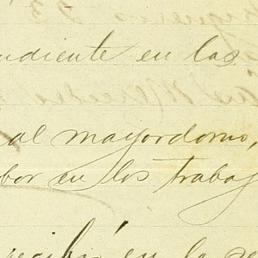 ndiente en las
al mayordomo,
bor en los trabaj
recibi en la se